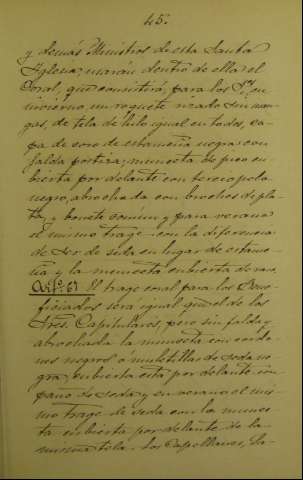 45.
y demás Ministros de esta Santa
Iglesia; usarán dentro de ella el
Coral, que consistirá, para los Sres. en
invierno un roquete rizado sin man-
gas, de tela de hilo igual en todos, ca-
pa de coro de estameña negra con
falda postiza; muceta de pico cu-
bierta por delante con terciopelo
negro, abrochada con broches de pla-
ta, y bonete comun y para verano
el mismo trage con la diferencia
de ser de seda en lugar de estame-
ña y la muceta cubierta de raso.
Artº. 61 El trage coral para los Bene-
ficiados será igual que el de los
Sres. Capitulares, pero sin falda y
abrochada la muceta con cordo-
nes negros ó muletillas de seda ne-
gra, cubierta esta por delante con
pano de seda y en verano el mis-
mo trage de seda con la muce-
ta cubierta por delante de la
misma tela. Los Capellanes,